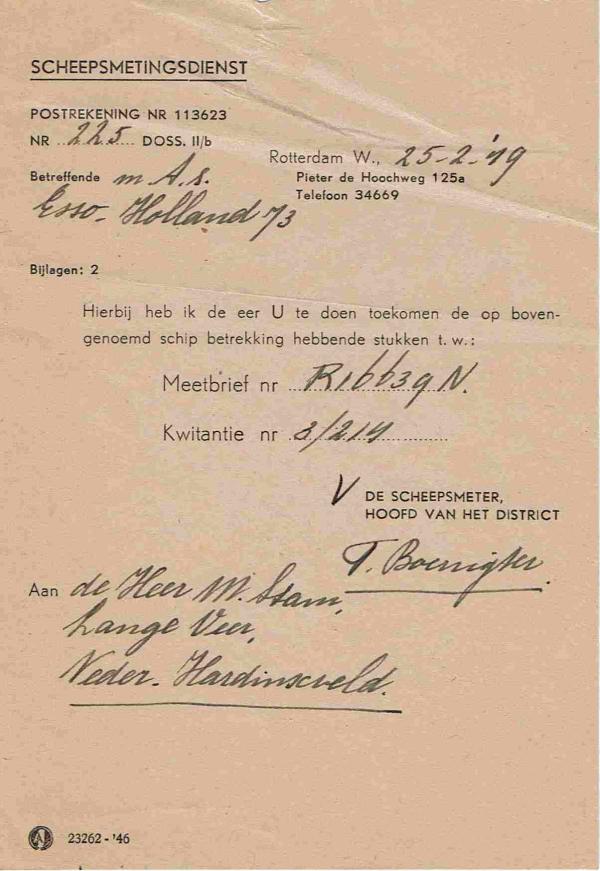 SCHEEPSMETINGSDIENST
POSTREKENING NR 113623
NR 225 DOSS. II/b
Rotterdam W., 25-2-'49
Pieter de Hoochweg 125a
Telefoon 34669
Betreffende m.A.s.
Esso-Holland 73
Bijlagen: 2
Hierbij heb ik de eer U te doen toekomen de op boven-
genoemd schip betrekking hebbende stukken t. w.:
Meetbrief nr R16639N.
Kwitantie nr 3/214
V DE SCHEEPSMETER,
HOOFD VAN HET DISTRICT
T. Boenigter.
Aan de Heer M. Stam,
Lange Veer,
Neder-Hardinxveld.
23262 - '46